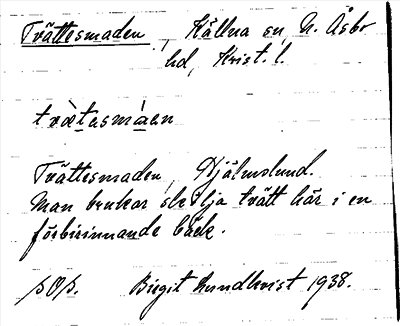 Tvättesmaden, Källna sn, N. Åsbo
hd, Krist. l.
Tvättesmaden, Hjälmslund.
Man brukar skölja tvätt här i en
förbirinnande bäck.
Birgit Lundkvist 1938.